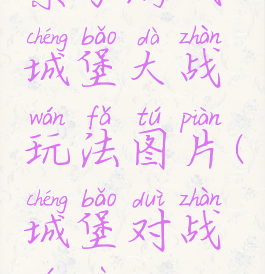 chéng bǎo dà zhàn
城堡大战
wán fǎ tú piàn
玩法图片(
chéng bǎo duì zhàn
城堡对战